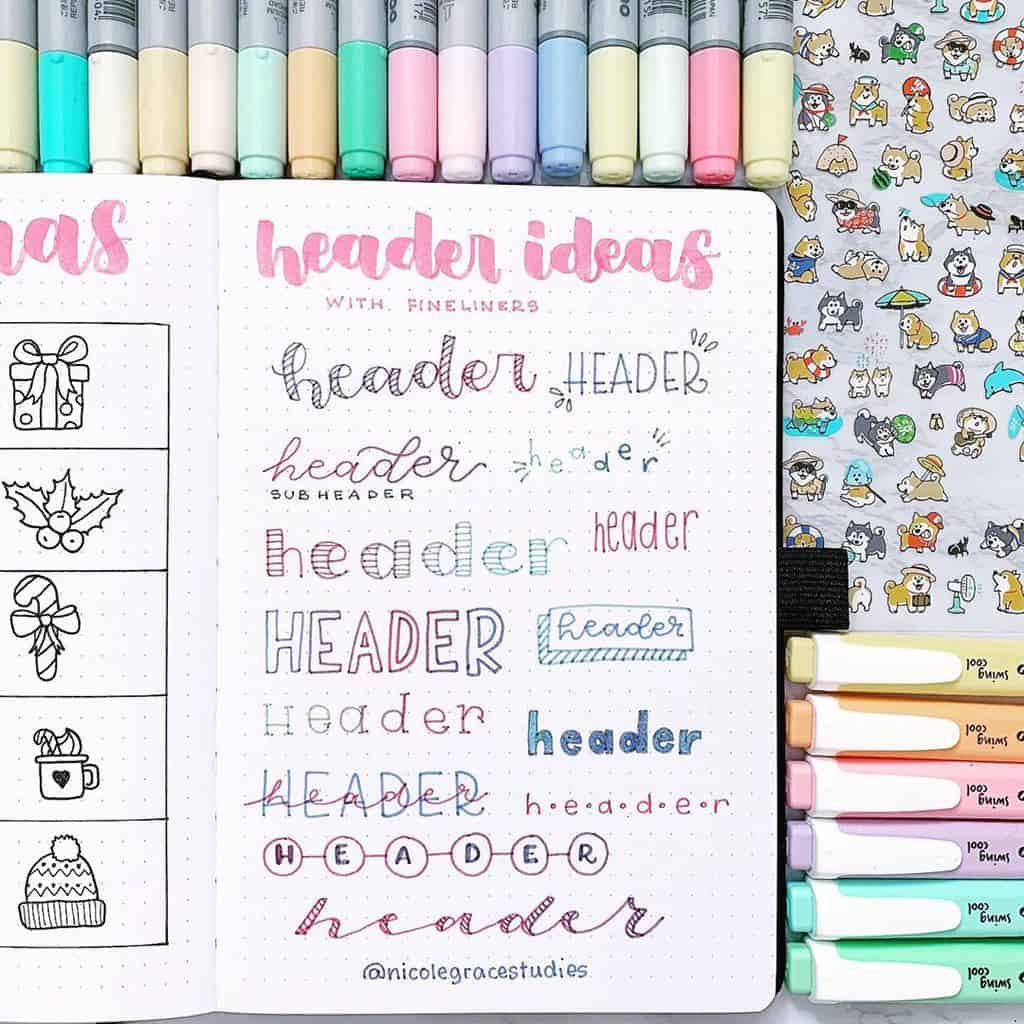 header ideas
WITH FINELINERS
header HEADER
header header
SUBHEADER
header header
HEADER header
Header header
HEADER
header h.e.a.d.e.r
HEADER
header
@nicolegracestudies
swing cool
swing cool
swing cool
swing cool
swing cool
swing cool